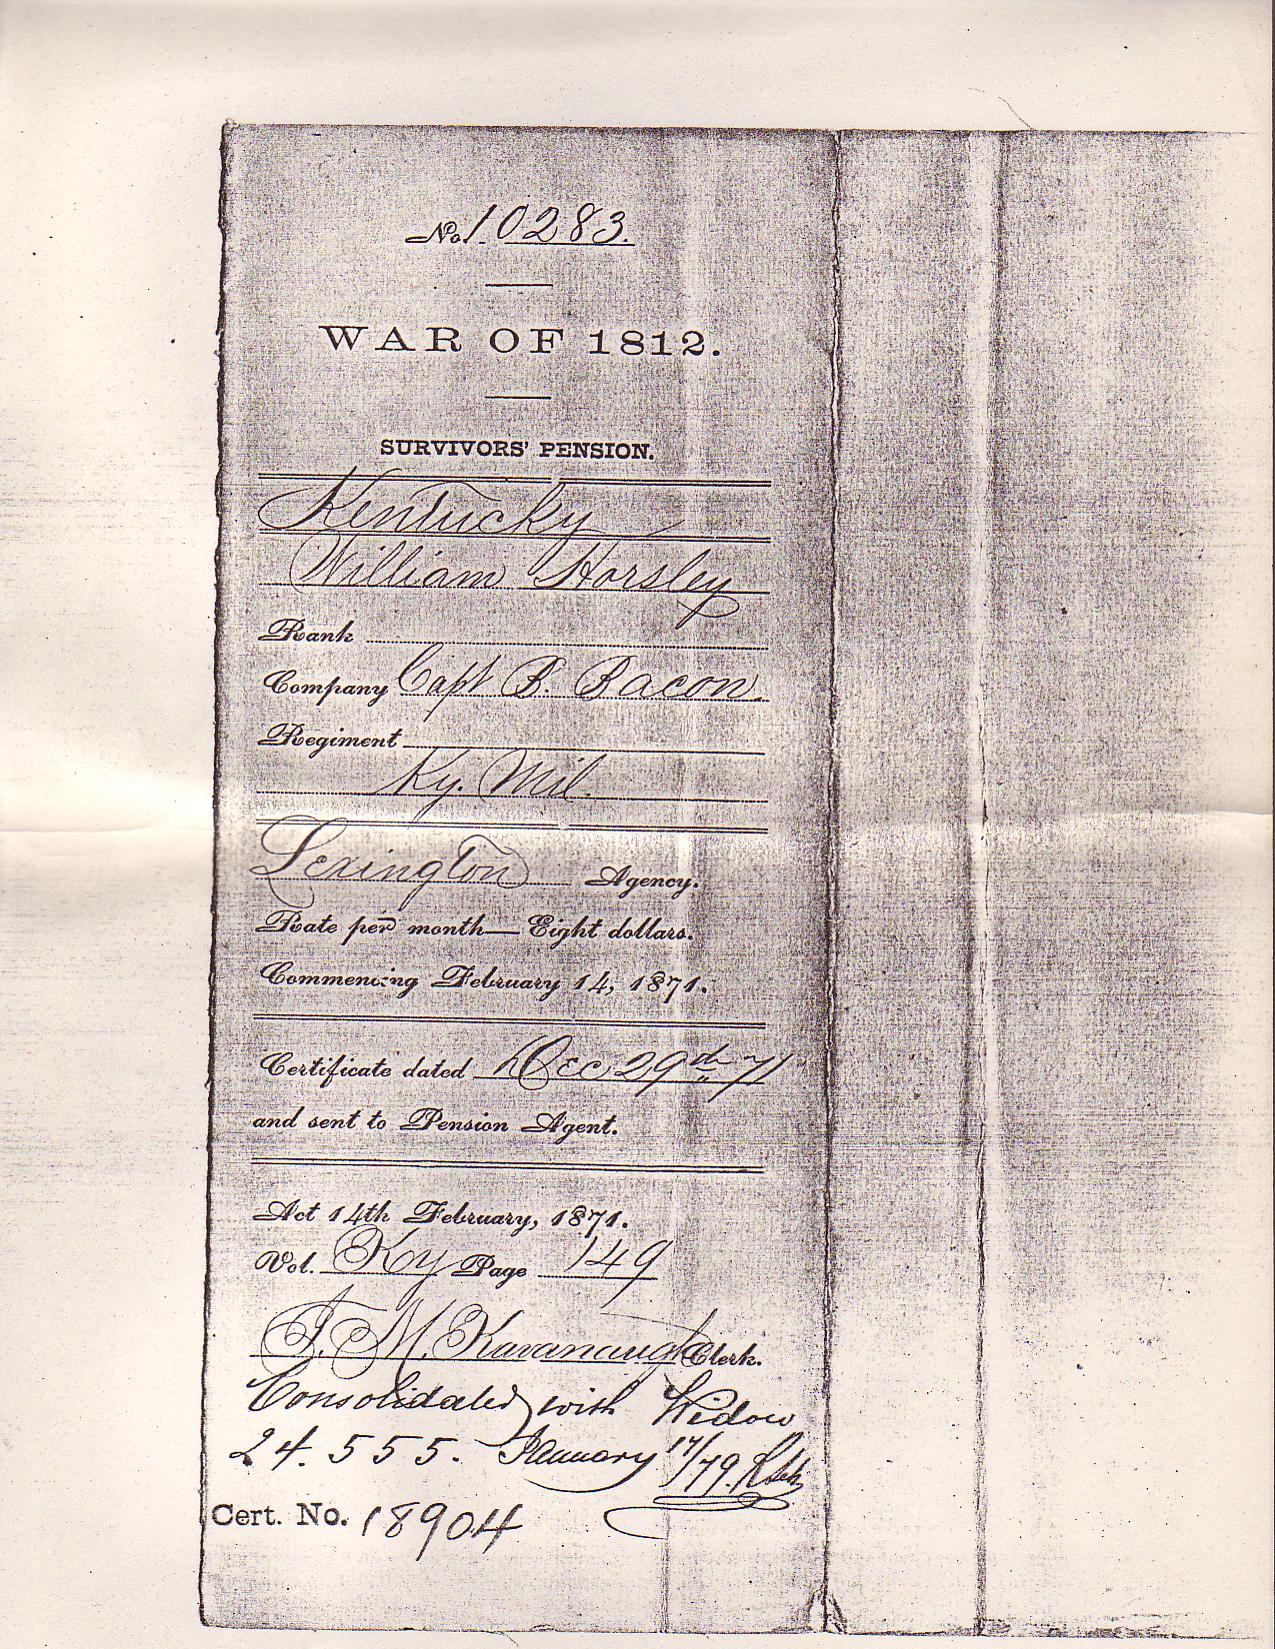 No. 10283.
WAR OF 1812.
SURVIVORS' PENSION.
Kentucky
William Horsley
Rank
Company Capt B. Bacon.
Regiment
Ky. Mil.
Lexington Agency.
Rate per month—Eight dollars.
Commencing February 14, 1871.
Certificate dated Dec 29th 71
and sent to Pension Agent.
Act 14th February, 1871.
Vol. Ky Page 149
T. M. Kavanaugh Clerk.
Consolidated with Widow
24.555. January 17/79.
Cert. No. 18904